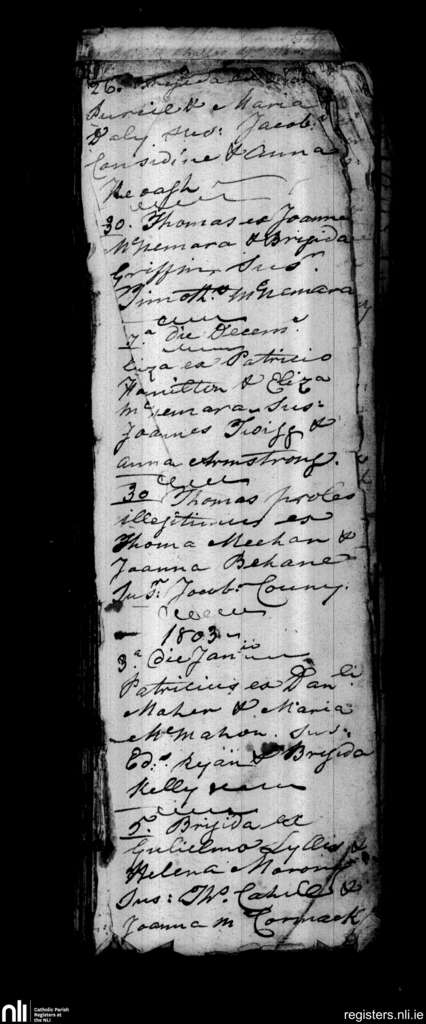 26. Brigida ex
Purcil & Maria
Daly sus: Jacobs
Considine & Anna
Keoagh
30. Thomas ex Joanne
McNemara & Brigida
Griffin, Susr.
Timoths McNemara
7.a die Decemr
Eliza ex Patricio
Hamilton & Eliza
McNemara Sus:
Joannes Twigg &
Anna Armstrong.
30 Thomas proles
illegitimus ex
Thoma Meehan &
Joanna Behane
Susr. Jacobs Couny.
1803
3.a die Janrio
Patricius ex Danli.
Maher & Maria
McMahon. Sus:
Eds. Ryan & Brigida
Kelly
5. Brigida ex
Gulielmo Lyllis &
Helena Morony
Sus: Ths. Cahill &
Joanna McCormack
nli
Catholic Parish
Registers at
the NLI
registers.nli.ie